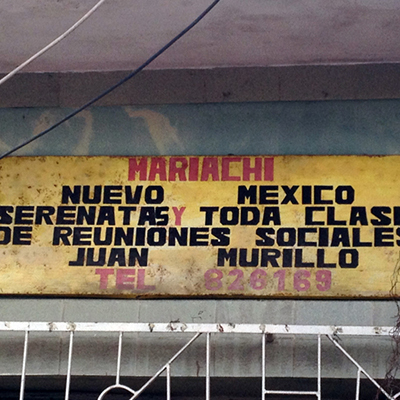 MARIACHI
NUEVO MEXICO
SERENATAS Y TODA CLASE
DE REUNIONES SOCIALES
JUAN MURILLO
TEL 826169